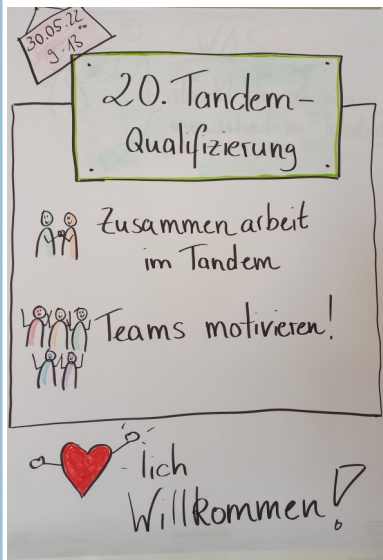 30.05.22
9-13⁰⁰
20. Tandem-
Qualifizierung
Zusammenarbeit
im Tandem
Teams motivieren!
-lich
Willkommen!